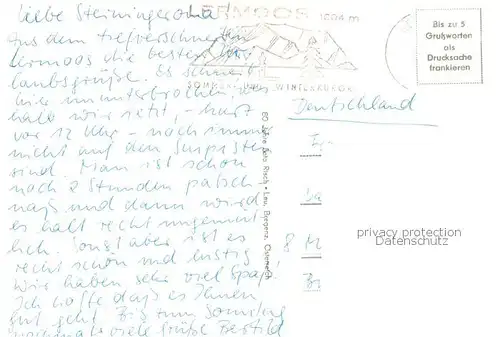 Liebe Steiningeroma!
aus dem tiefverschneiten
Lermoos die besten Ur-
laubsgrüße. Es schneit
hier ununterbrochen
halb wir jetzt, - kurz
vor 12 Uhr - noch immer
nicht auf den
sind. Man ist schon
nach 2 Stunden patsch
naß und dann wird
es halt recht ungemüt
lich. Sonst aber ist es
recht schön und lustig
Wir haben sehr viel Spaß
Ich hoffe daß es Ihnen
gut geht. Bis zum Samstag
nochmals viele Grüße
LERMOOS 1004 m
SOMMER- WINTERKURORT
Bis zu 5
Grußworten
als
Drucksache
frankieren
Deutschland
8 M
Risch-Lau, Bregenz, Österreich
privacy protection
Datenschutz